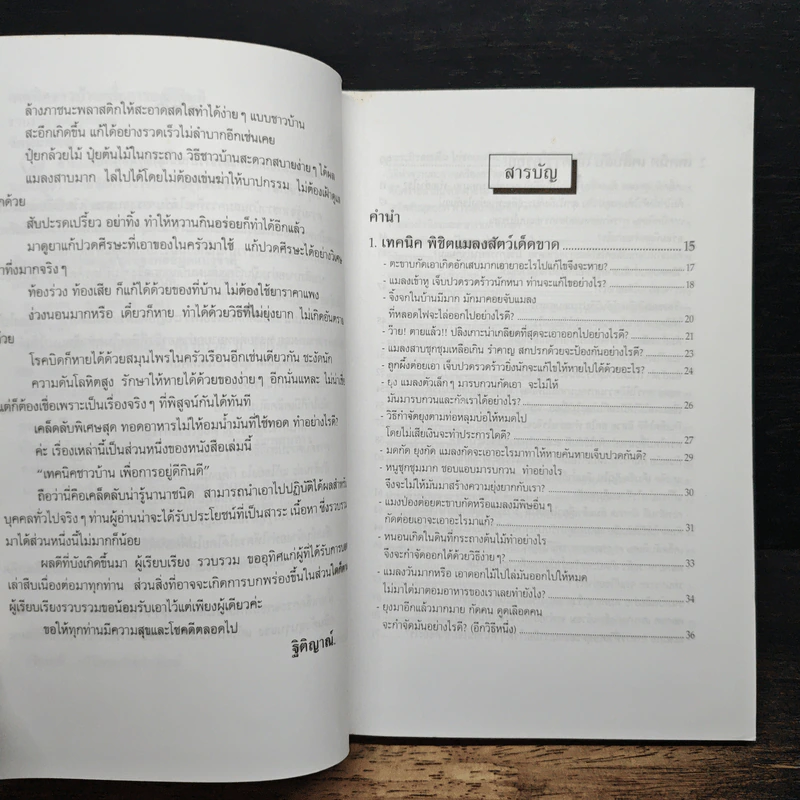 ล้างภาชนะพลาสติกให้สะอาดสดใสทำได้ง่ายๆ แบบชาวบ้าน
สะอึกเกิดขึ้น แก้ได้อย่างรวดเร็วไม่ลำบากอีกเช่นเคย
ปุ๋ยกล้วยไม้ ปุ๋ยต้นไม้ในกระถาง วิธีชาวบ้านสะดวกสบายง่ายๆ ได้ผล
แมลงสาบมาก ไล่ไปได้โดยไม่ต้องเข่นฆ่าให้บาปกรรม ไม่ต้องเฝ้าดูแล
ด้วย
สับปะรดเปรี้ยว อย่าทิ้ง ทำให้หวานกินอร่อยก็ทำได้อีกแล้ว
มาดูยาแก้ปวดศีรษะที่เอาของในครัวมาใช้ แก้ปวดศีรษะได้อย่างวิเศษ
าทึ่งมากจริงๆ
ท้องร่วง ท้องเสีย ก็แก้ได้ด้วยของที่บ้าน ไม่ต้องใช้ยาราคาแพง
ง่วงนอนมากหรือ เดี๋ยวก็หาย ทำได้ด้วยวิธีที่ไม่ยุ่งยาก ไม่เกิดอันตราย
ด้วย
โรคบิดก็หายได้ด้วยสมุนไพรในครัวเรือนอีกเช่นเดียวกัน ชะงัดนัก
ความดันโลหิตสูง รักษาให้หายได้ด้วยของง่ายๆ อีกนั่นแหละ ไม่น่าเชื่อ
แต่ก็ต้องเชื่อเพราะเป็นเรื่องจริงๆ ที่พิสูจน์กันได้ทันที
เคล็ดลับพิเศษสุด ทอดอาหารไม่ให้อมน้ำมันที่ใช้ทอด ทำอย่างไรดี?
ค่ะ เรื่องเหล่านี้เป็นส่วนหนึ่งของหนังสือเล่มนี้
“เทคนิคชาวบ้าน เพื่อการอยู่ดีกินดี”
ถือว่านี่คือเคล็ดลับน่ารู้นานาชนิด สามารถนำเอาไปปฏิบัติได้ผลสำหรับ
บุคคลทั่วไปจริงๆ ท่านผู้อ่านน่าจะได้รับประโยชน์ที่เป็นสาระ เนื้อหา ซึ่งรวบรวม
มาได้ส่วนหนึ่งนี้ไม่มากก็น้อย
ผลดีที่บังเกิดขึ้นมา ผู้เรียบเรียง รวบรวม ขออุทิศแก่ผู้ที่ได้รับการบอก
เล่าสืบเนื่องต่อมาทุกท่าน ส่วนสิ่งที่อาจจะเกิดการบกพร่องขึ้นในส่วนใดก็ตาม
ผู้เรียบเรียงรวบรวมขอน้อมรับเอาไว้แต่เพียงผู้เดียวค่ะ
ขอให้ทุกท่านมีความสุขและโชคดีตลอดไป
ฐิติญาณ์.
สารบัญ
คำนำ
1. เทคนิค พิชิตแมลงสัตว์เด็ดขาด .......... 15
- ตะขาบกัดเอาเกิดอักเสบมากเอายาอะไรไปแก้ไขจึงจะหาย? .......... 17
- แมลงเข้าหู เจ็บปวดรวดร้าวนักหนา ท่านจะแก้ไขอย่างไร? .......... 18
- จิ้งจกในบ้านมีมาก มักมาคอยจับแมลง
ที่หลอดไฟจะไล่ออกไปอย่างไรดี? .......... 20
- ว๊าย! ตายแล้ว!! ปลิงเกาะน่าเกลียดที่สุดจะเอาออกไปอย่างไรดี? .......... 21
- แมลงสาบชุกชุมเหลือเกิน รำคาญ สกปรกด้วยจะป้องกันอย่างไรดี? .......... 23
- ถูกผึ้งต่อยเอา เจ็บปวดรวดร้าวยิ่งนักจะแก้ไขให้หายไปได้ด้วยอะไร? .......... 24
- ยุง แมลงตัวเล็กๆ มารบกวนกัดเอา จะไม่ให้
มันมารบกวนและกัดเราได้อย่างไร? .......... 26
- วิธีกำจัดยุงตามท่อหลุมบ่อให้หมดไป
โดยไม่เสียเงินจะทำประการใดดี? .......... 27
- มดกัด ยุงกัด แมลงกัดจะเอาอะไรมาทาให้หายคันหายเจ็บปวดกันดี? .......... 29
- หนูชุกชุมมาก ชอบแอบมารบกวน ทำอย่างไร
จึงจะไม่ให้มันมาสร้างความยุ่งยากกับเรา? .......... 30
- แมงป่องต่อยตะขาบกัดหรือแมลงมีพิษอื่นๆ
กัดต่อยเอาจะเอาอะไรมาแก้? .......... 31
- หนอนเกิดในดินที่กระถางต้นไม้ทำอย่างไร
จึงจะกำจัดออกได้ด้วยวิธีง่ายๆ? .......... 33
- แมลงวันมากหรือ เอาดอกไม้ไปไล่มันออกไปให้หมด
ไม่มาไต่มาตอมอาหารของเราเลยทำยังไง? .......... 34
- ยุงมาอีกแล้วมากมาย กัดคน ดูดเลือดคน
จะกำจัดมันอย่างไรดี? (อีกวิธีหนึ่ง) .......... 36